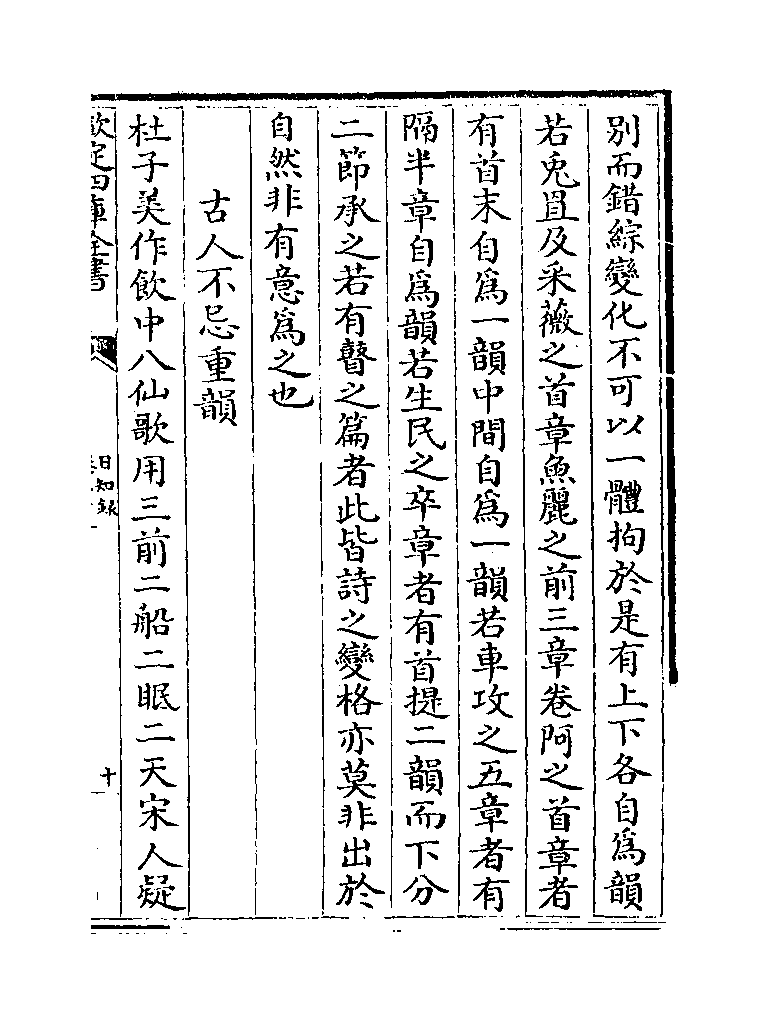 別而錯綜變化不可以一體拘於是有上下各自爲韻
若兎罝及采薇之首章魚麗之前三章卷阿之首章者
有首末自爲一韻中間自爲一韻若車攻之五章者有
隔半章自爲韻若生民之卒章者有首提二韻而下分
二節承之若有瞽之篇者此皆詩之變格亦莫非出於
自然非有意爲之也
古人不忌重韻
杜子美作飲中八仙歌用三前二船二眠二天宋人疑
欽定四庫全書
日知録
十